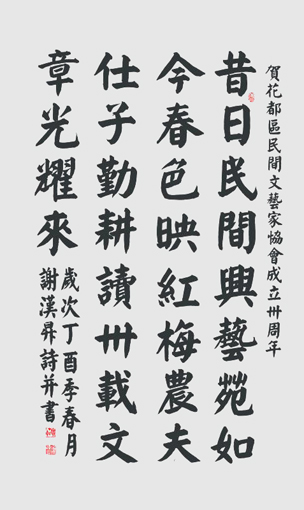 賀花都區民間文藝家協會成立卅周年
昔日民間興藝苑如
今春色映紅梅農夫
仕子勤耕讀卅載文
章光耀來
歲次丁酉季春月
謝漢昇詩并書